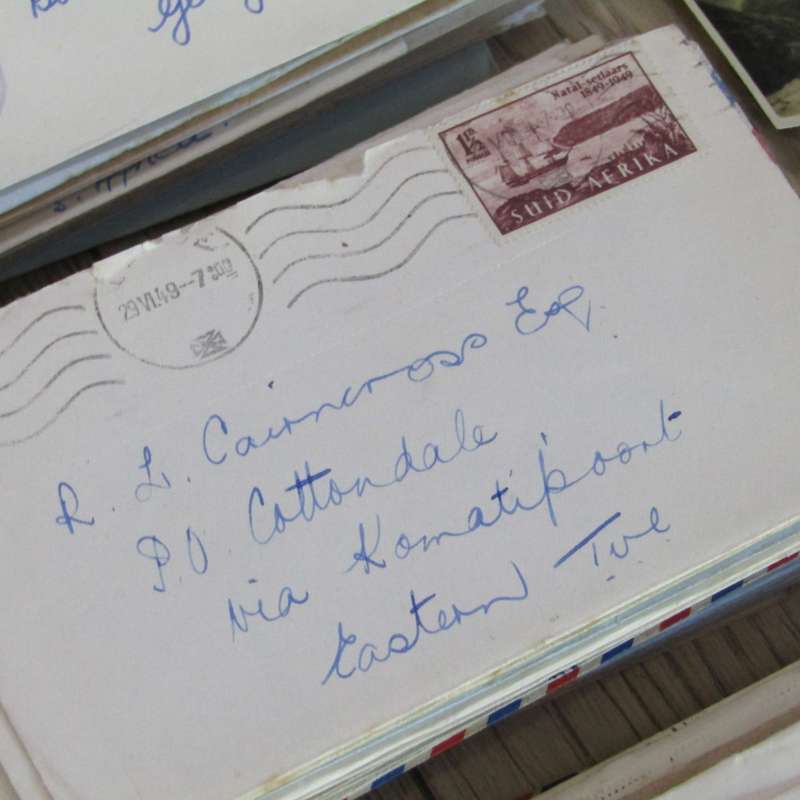 Natal-setlaars
1849-1949
1½D
SUID-AFRIKA
29 VI 49--7 00
R. L. Cairncross Esq.
P.O. Cottondale
via Komatipoort
Eastern Tvl